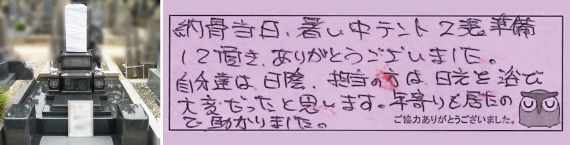 納骨当日、暑い中テント2張準備
して頂き、ありがとうございました。
自分達は、日陰、担当の方は、日光を浴び
大変だったと思います。年寄りも居たの
で助かりました。
ご協力ありがとうございました。